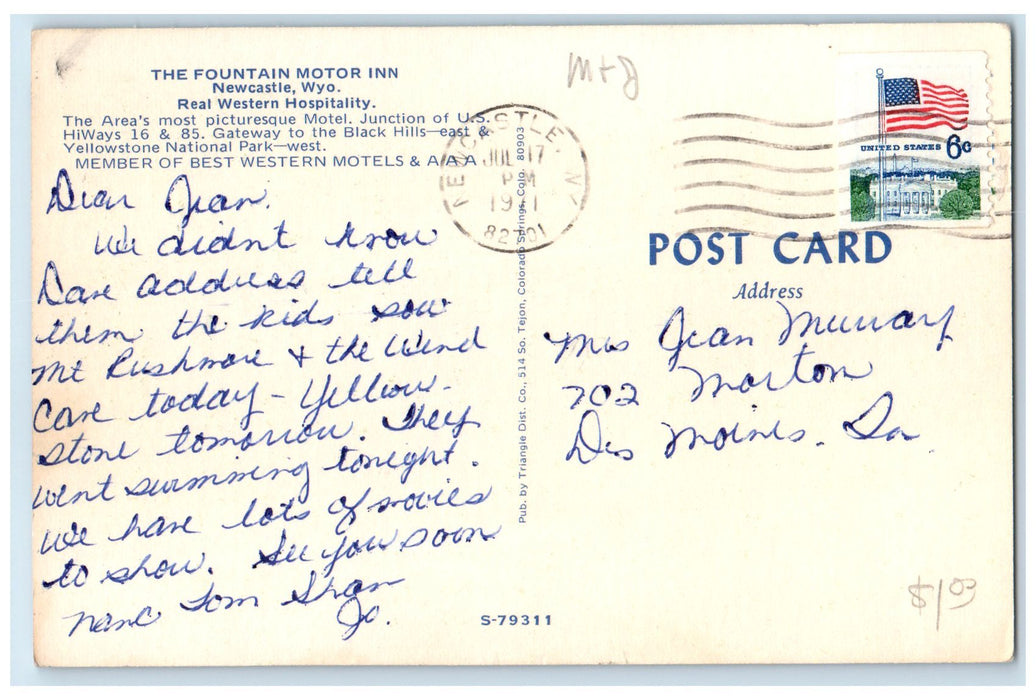 THE FOUNTAIN MOTOR INN
Newcastle, Wyo.
Real Western Hospitality.
The Area's most picturesque Motel. Junction of U.S.
HiWays 16 & 85. Gateway to the Black Hills—east &
Yellowstone National Park—west.
MEMBER OF BEST WESTERN MOTELS & AAA
Dear Jean.
We didnt know
Dave address tell
them the kids saw
Mt Rushmore & the Wind
Cave today - Yellow-
stone tomorrow. They
went swimming tonight.
We have lots of movies
to show. See you soon
Tom
Jo.
Pub. by Triangle Dist. Co., 514 So. Tejon, Colorado Springs, Colo. 80903
S-79311
M+J
NEWCASTLE, WY
JUL 17
PM
1971
82701
UNITED STATES 6c
POST CARD
Address
Mrs Jean Murray
702 Morton
Des Moines. Ia
$1 03